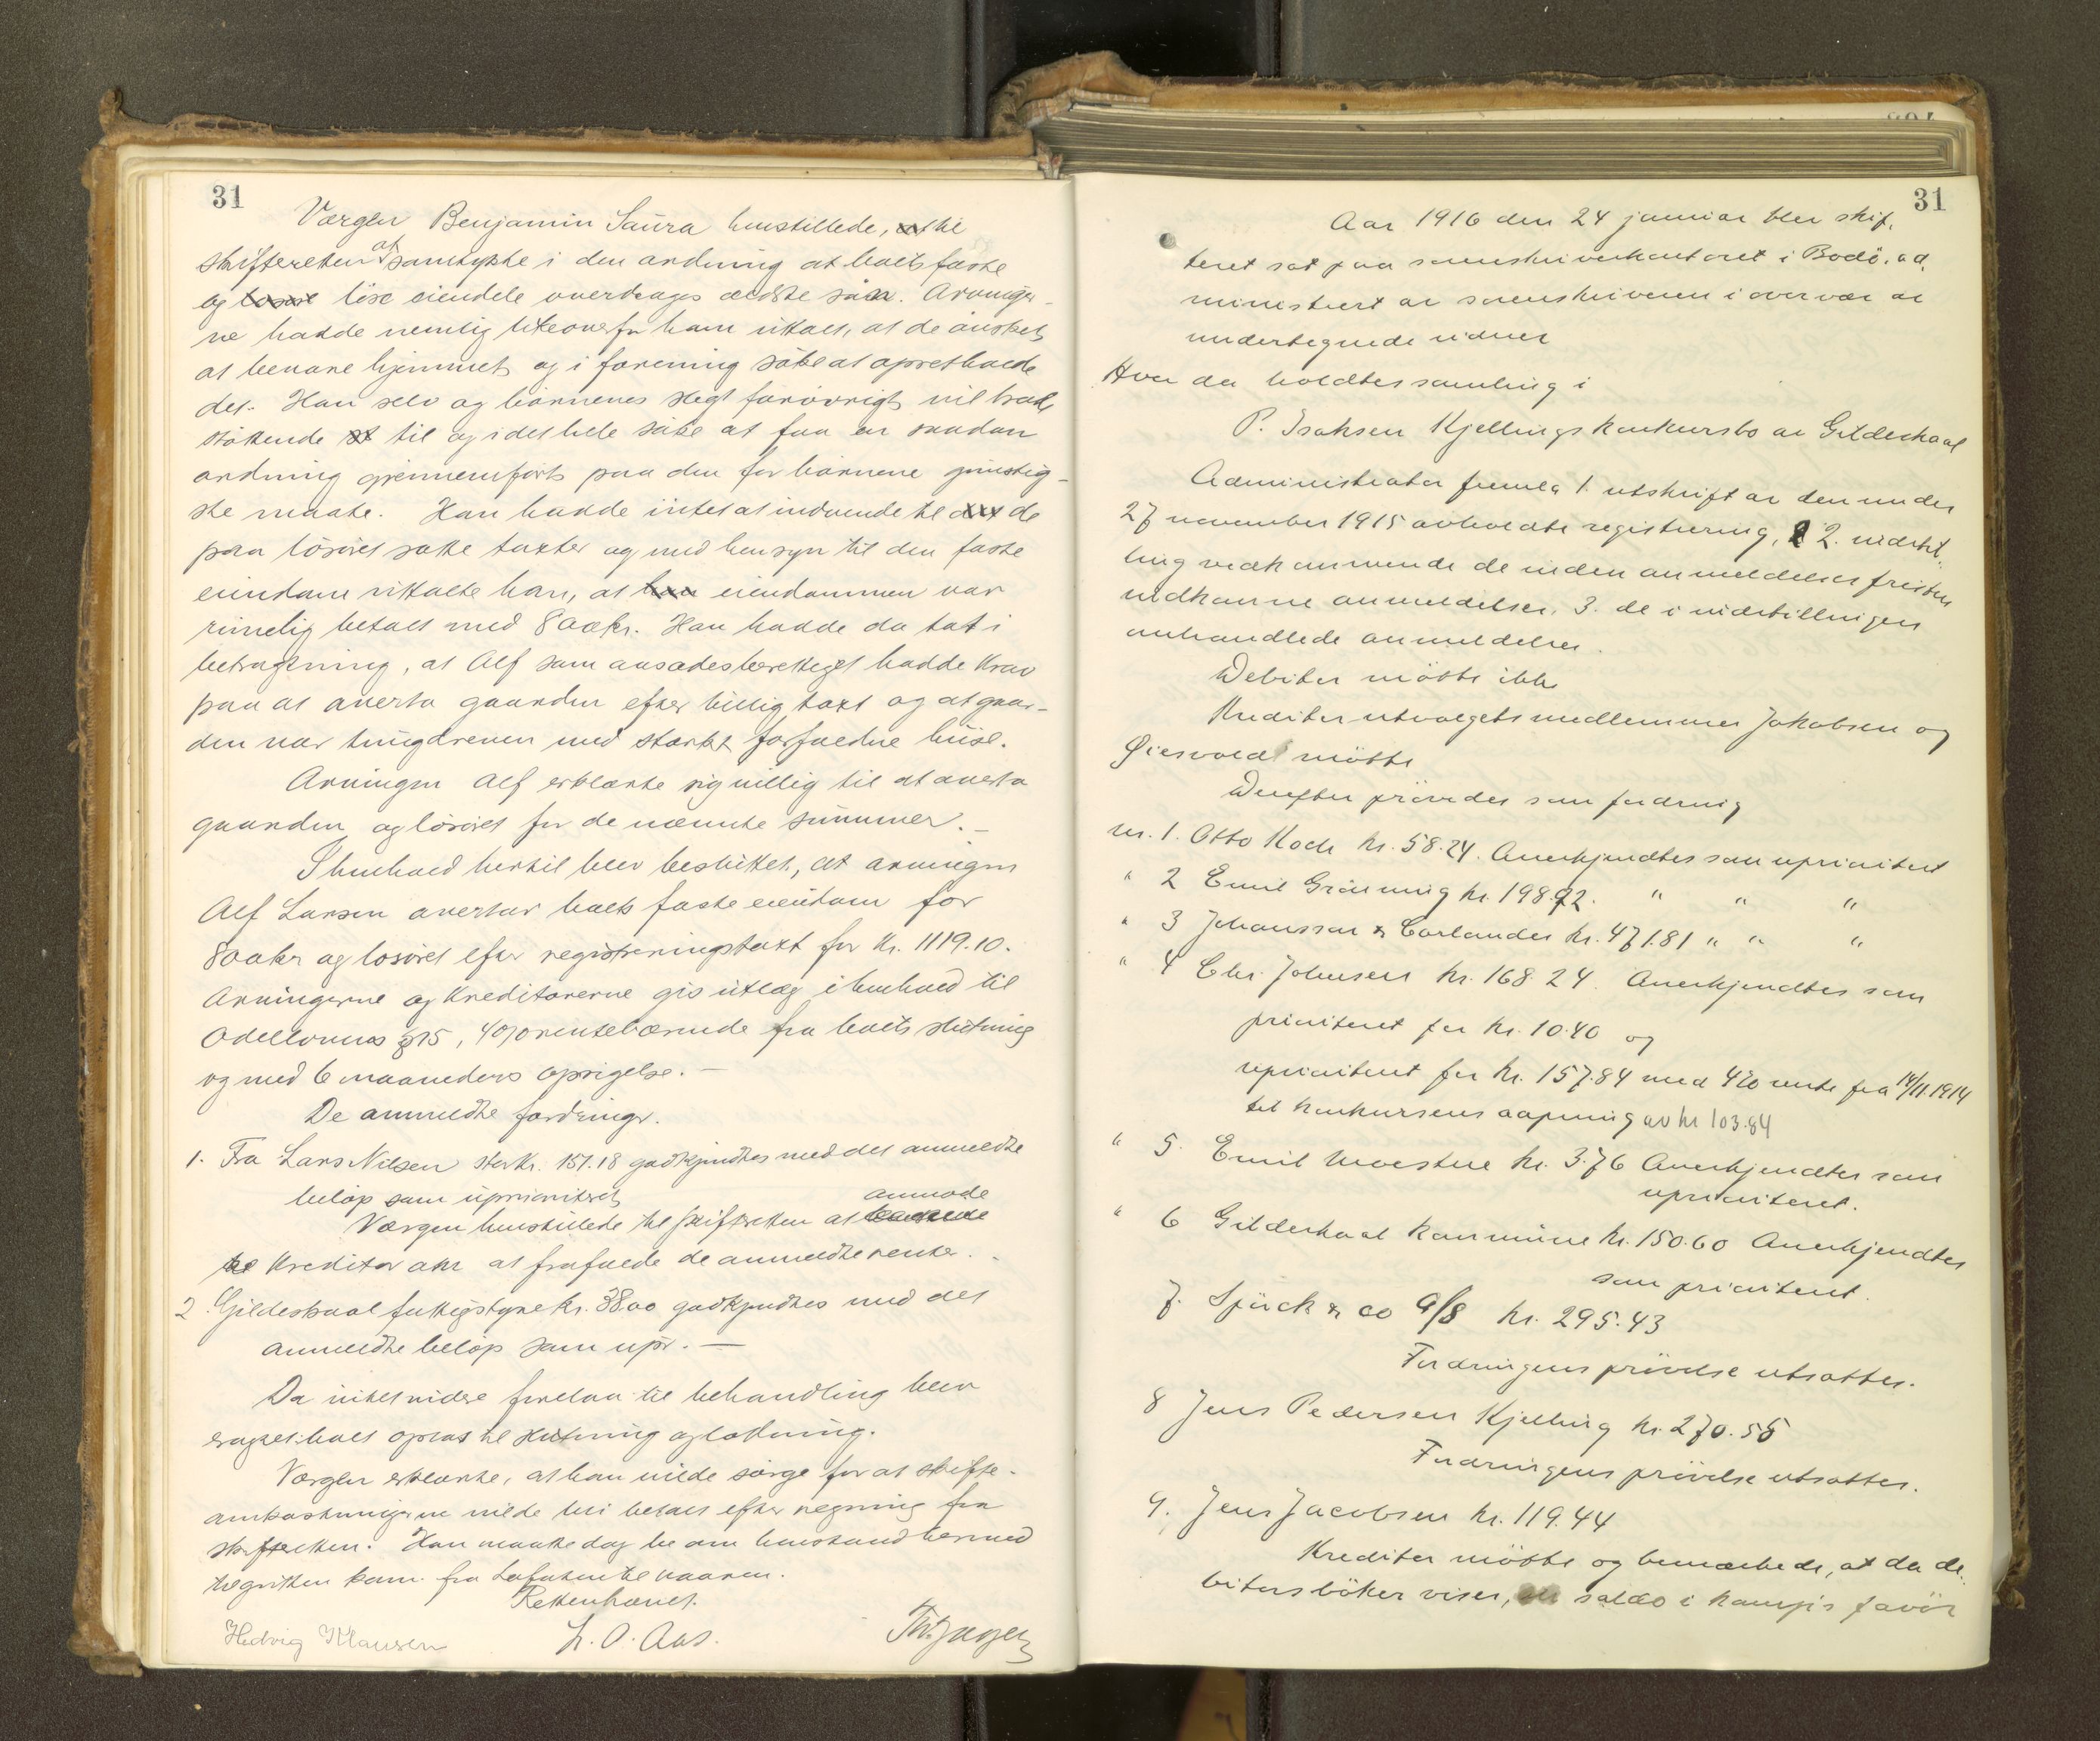 31
Værgen Benjamin Saura henstillede, til
skifteretten at samtykke i den ordning at boets faste
og løse eiendele overdrages ældste søn. Arvinger-
ne hadde nemlig likeoverfor ham uttalt, at de ønsket
at bevare hjemmet og i forening søke at opretholde
det. Han selv og børnenes slegt forøvrigt vil træde
støttende til og i det hele søke at faa en saadan
ordning gjennemført paa den for børnene gunstig-
ste maate. Han hadde intet at indvende til de
paa løsøret satte takster og med hensyn til den faste
eiendom uttalte han, at eiendommen var
rimelig betalt med 800 kr. Han hadde da tat i
betragtning, at Alf som aasædesberettiget hadde krav
paa at overta gaarden efter billig takst og at gaar-
den var tungdreven med sterkt forfaldne huse.
Arvingen Alf erklærte sig villig til at overta
gaarden og løsøret for de nævnte summer.-
I henhold hertil blev besluttet, at arvingen
Alf Larsen overtar boets faste eiendom for
800 kr og løsøret efter registreringstakst for kr. 1119.10.
Arvingerne og kreditorerne gis utlæg i henhold til
Odellovens § 15, 4 o/o rentebærende fra boets slutning
og med 6 maaneders opsigelse.-
De anmeldte fordringer.
1. Fra Lars Nilsen stor kr. 151.18 godkjendtes med det anmeldte
beløp som uprioritert
anmode
Værgen henstillede til skifteretten at
kreditor om at frafalde de anmeldte renter.-
2. Gildeskaal fattigstyre kr. 38.00 godkjendtes med det
anmeldte beløp som upr.-
Da intet videre forelaa til behandling blev
boet optat til slutning og lodning.
Værgen erklærte, at han vilde sørge for at skifte-
omkostningerne vilde bli betalt efter regning fra
skifteretten. Han maatte dog be om henstand hermed
til gutten kom fra Lofoten til vaaren.
Retten hævet.
Hedvig Klausen L. O. Aas.
31
Aar 1916 den 24 januar blev skif-
teret sat paa sorenskriverkontoret i Bodö, ad-
ministrert av sorenskriveren i overvær av
undertegnede vidner
Hvor da holdtes samling i
P. Isaksen Kjellings konkursbo av Gildeskaal
Administrator fremla 1. utskrift av den under
27 november 1915 avholdte registrering, 2. indstil-
ling vedkommende de inden anmeldelsesfristen
indkomne anmeldelser, 3. de i indstillingen
omhandlede anmeldelser.
Debitor mötte ikke
Kreditorutvalgets medlemmer Jakobsen og
Øiesvold mötte
Derefter prövedes som fordring
nr. 1. Otto Koch kr. 58.24. Anerkjendtes som uprioritert
" 2 Emil Grönning kr. 198.92. " " "
" 3 Johanssen & Carlander kr. 471.81 " " "
" 4 Chr. Johnsen kr. 168.24. Anerkjendtes som
prioritert for kr. 10.40 og
uprioritert for kr. 157.84 med 4% rente fra 14/11.1914
til konkursens aapning av kr 103.84
" 5. Emil Moestue kr. 3.76 Anerkjendtes som
uprioritert.
" 6 Gildeskaal kommune kr. 150.60 Anerkjendtes
som prioritert.
7. Spürck & co A/S kr. 295.43
Fordringens prövelse utsattes.
8 Jens Pedersen Kjelling kr. 270.55
Fordringens prövelse utsattes.
9. Jens Jacobsen kr. 119.44
Kreditor mötte og bemærkede, at da de-
bitors böker viser, saldo i favör